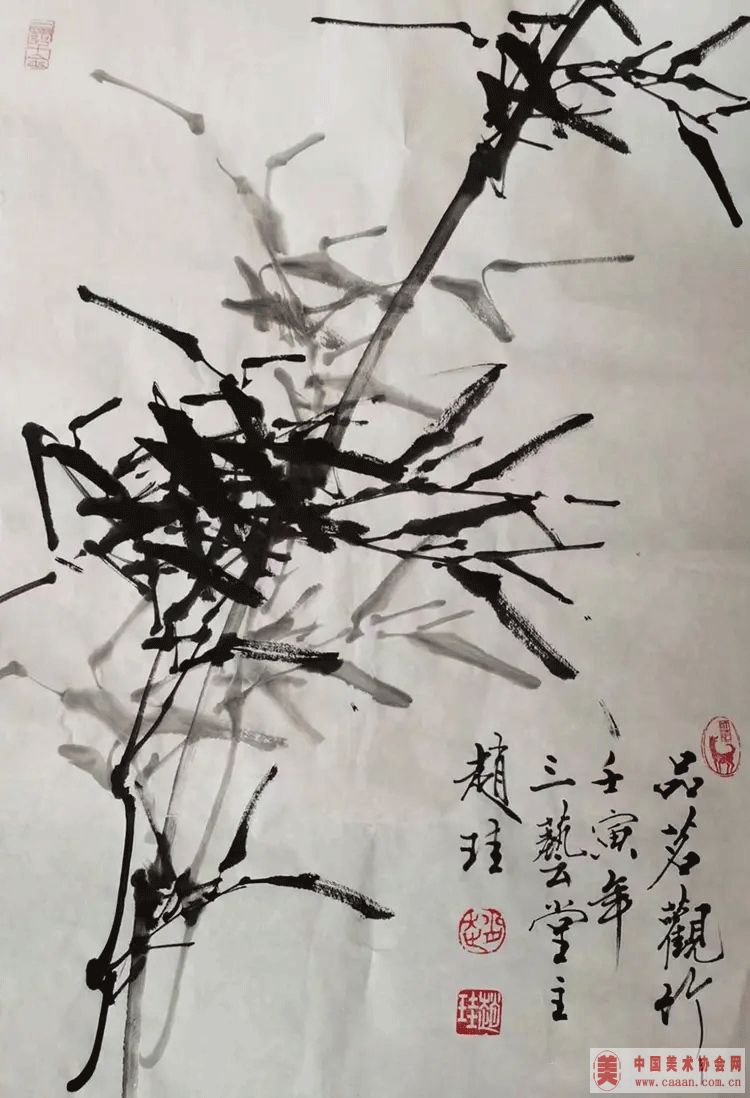 品茗觀竹
壬寅年
三藝堂主
趙珪
趙珪
美 中国美术协会网
www.caaan.com.cn